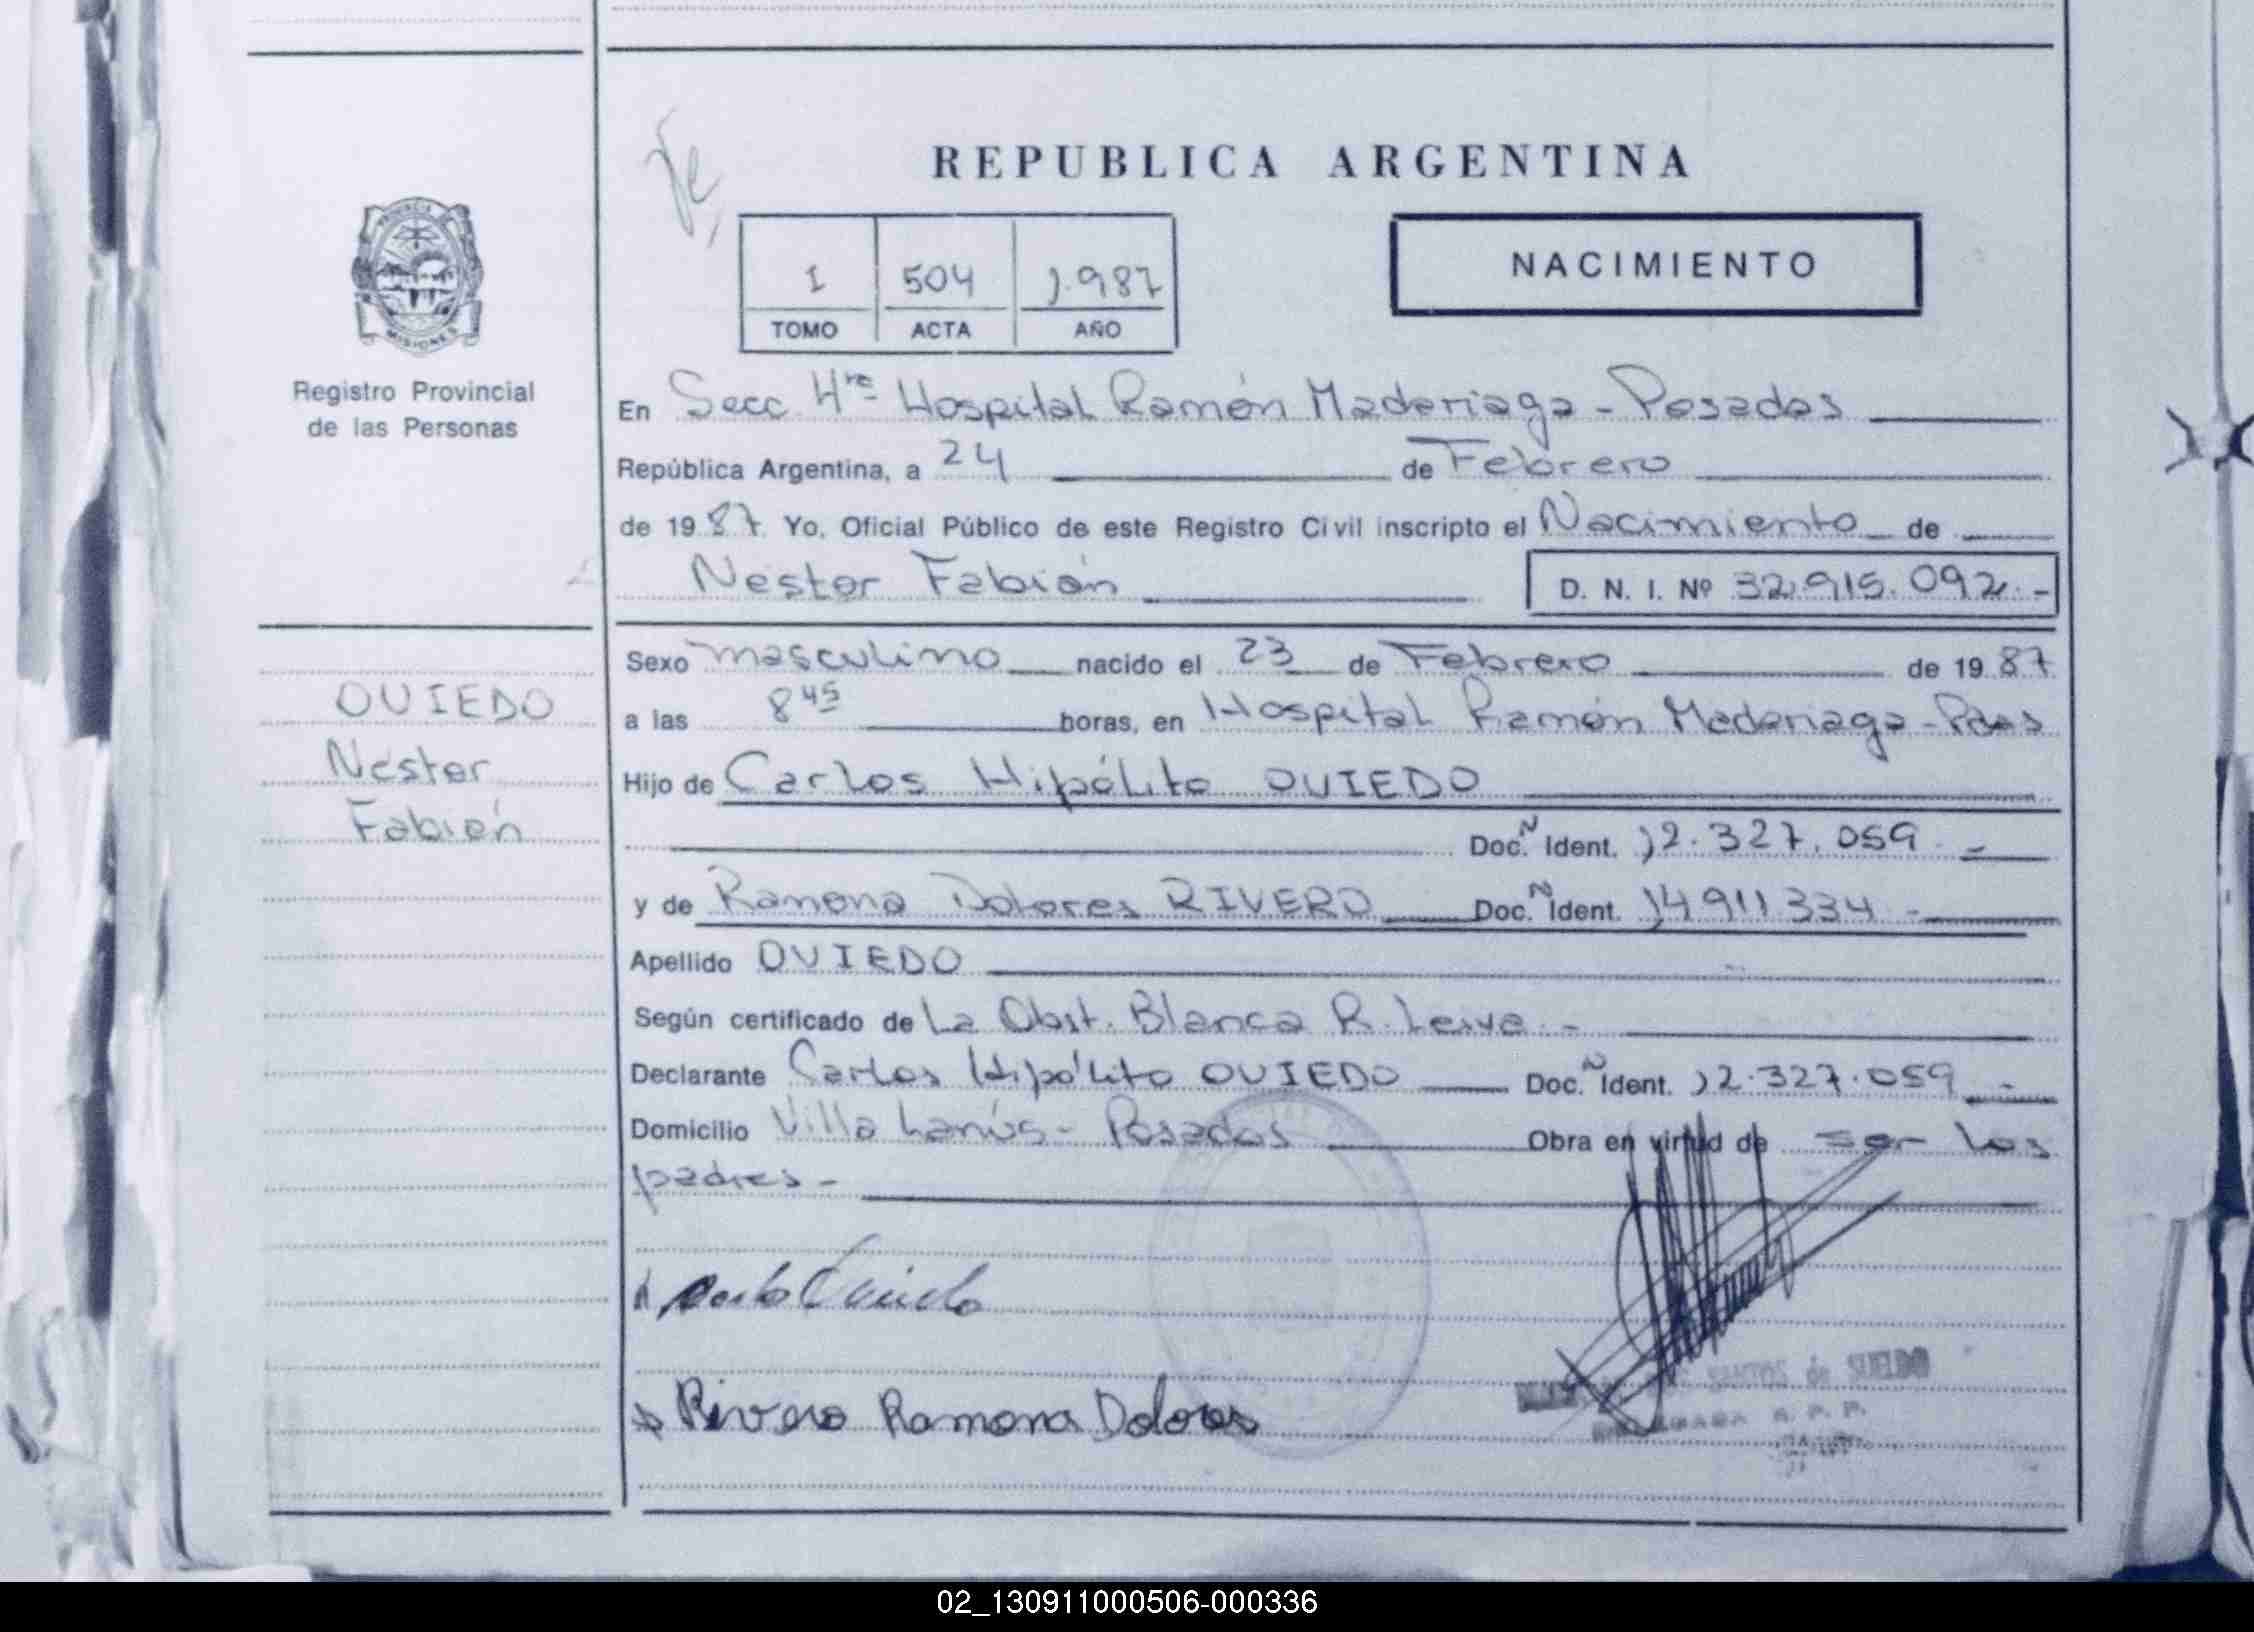 REPUBLICA ARGENTINA
PROVINCIA
MISIONES
Registro Provincial
de las Personas
I 504 1.987
TOMO ACTA AÑO
NACIMIENTO
En Secc 4ta Hospital Ramón Madariaga - Posadas
República Argentina, a 24 de Febrero
de 1987. Yo, Oficial Público de este Registro Civil inscripto el Nacimiento de
Nestor Fabián D. N. I. Nº 32.915.092.-
Sexo masculino nacido el 23 de Febrero de 1987
a las 8 45 horas, en Hospital Ramón Madariaga - Pdas
Hijo de Carlos Hipólito OVIEDO
Doc. N Ident. 12.327.059 -
y de Ramona Dolores RIVERO Doc. N Ident. 14 911 334 -
Apellido OVIEDO
Según certificado de La Obst. Blanca R. Leiva -
Declarante Carlos Hipólito OVIEDO Doc. N Ident. 12.327.059 -
Domicilio Villa Lanús - Posadas Obra en virtud de ser los
padres -
OVIEDO
Néstor
Fabián
Rivero Ramona Dolores
SANTOS de SUEDO
02_130911000506-000336